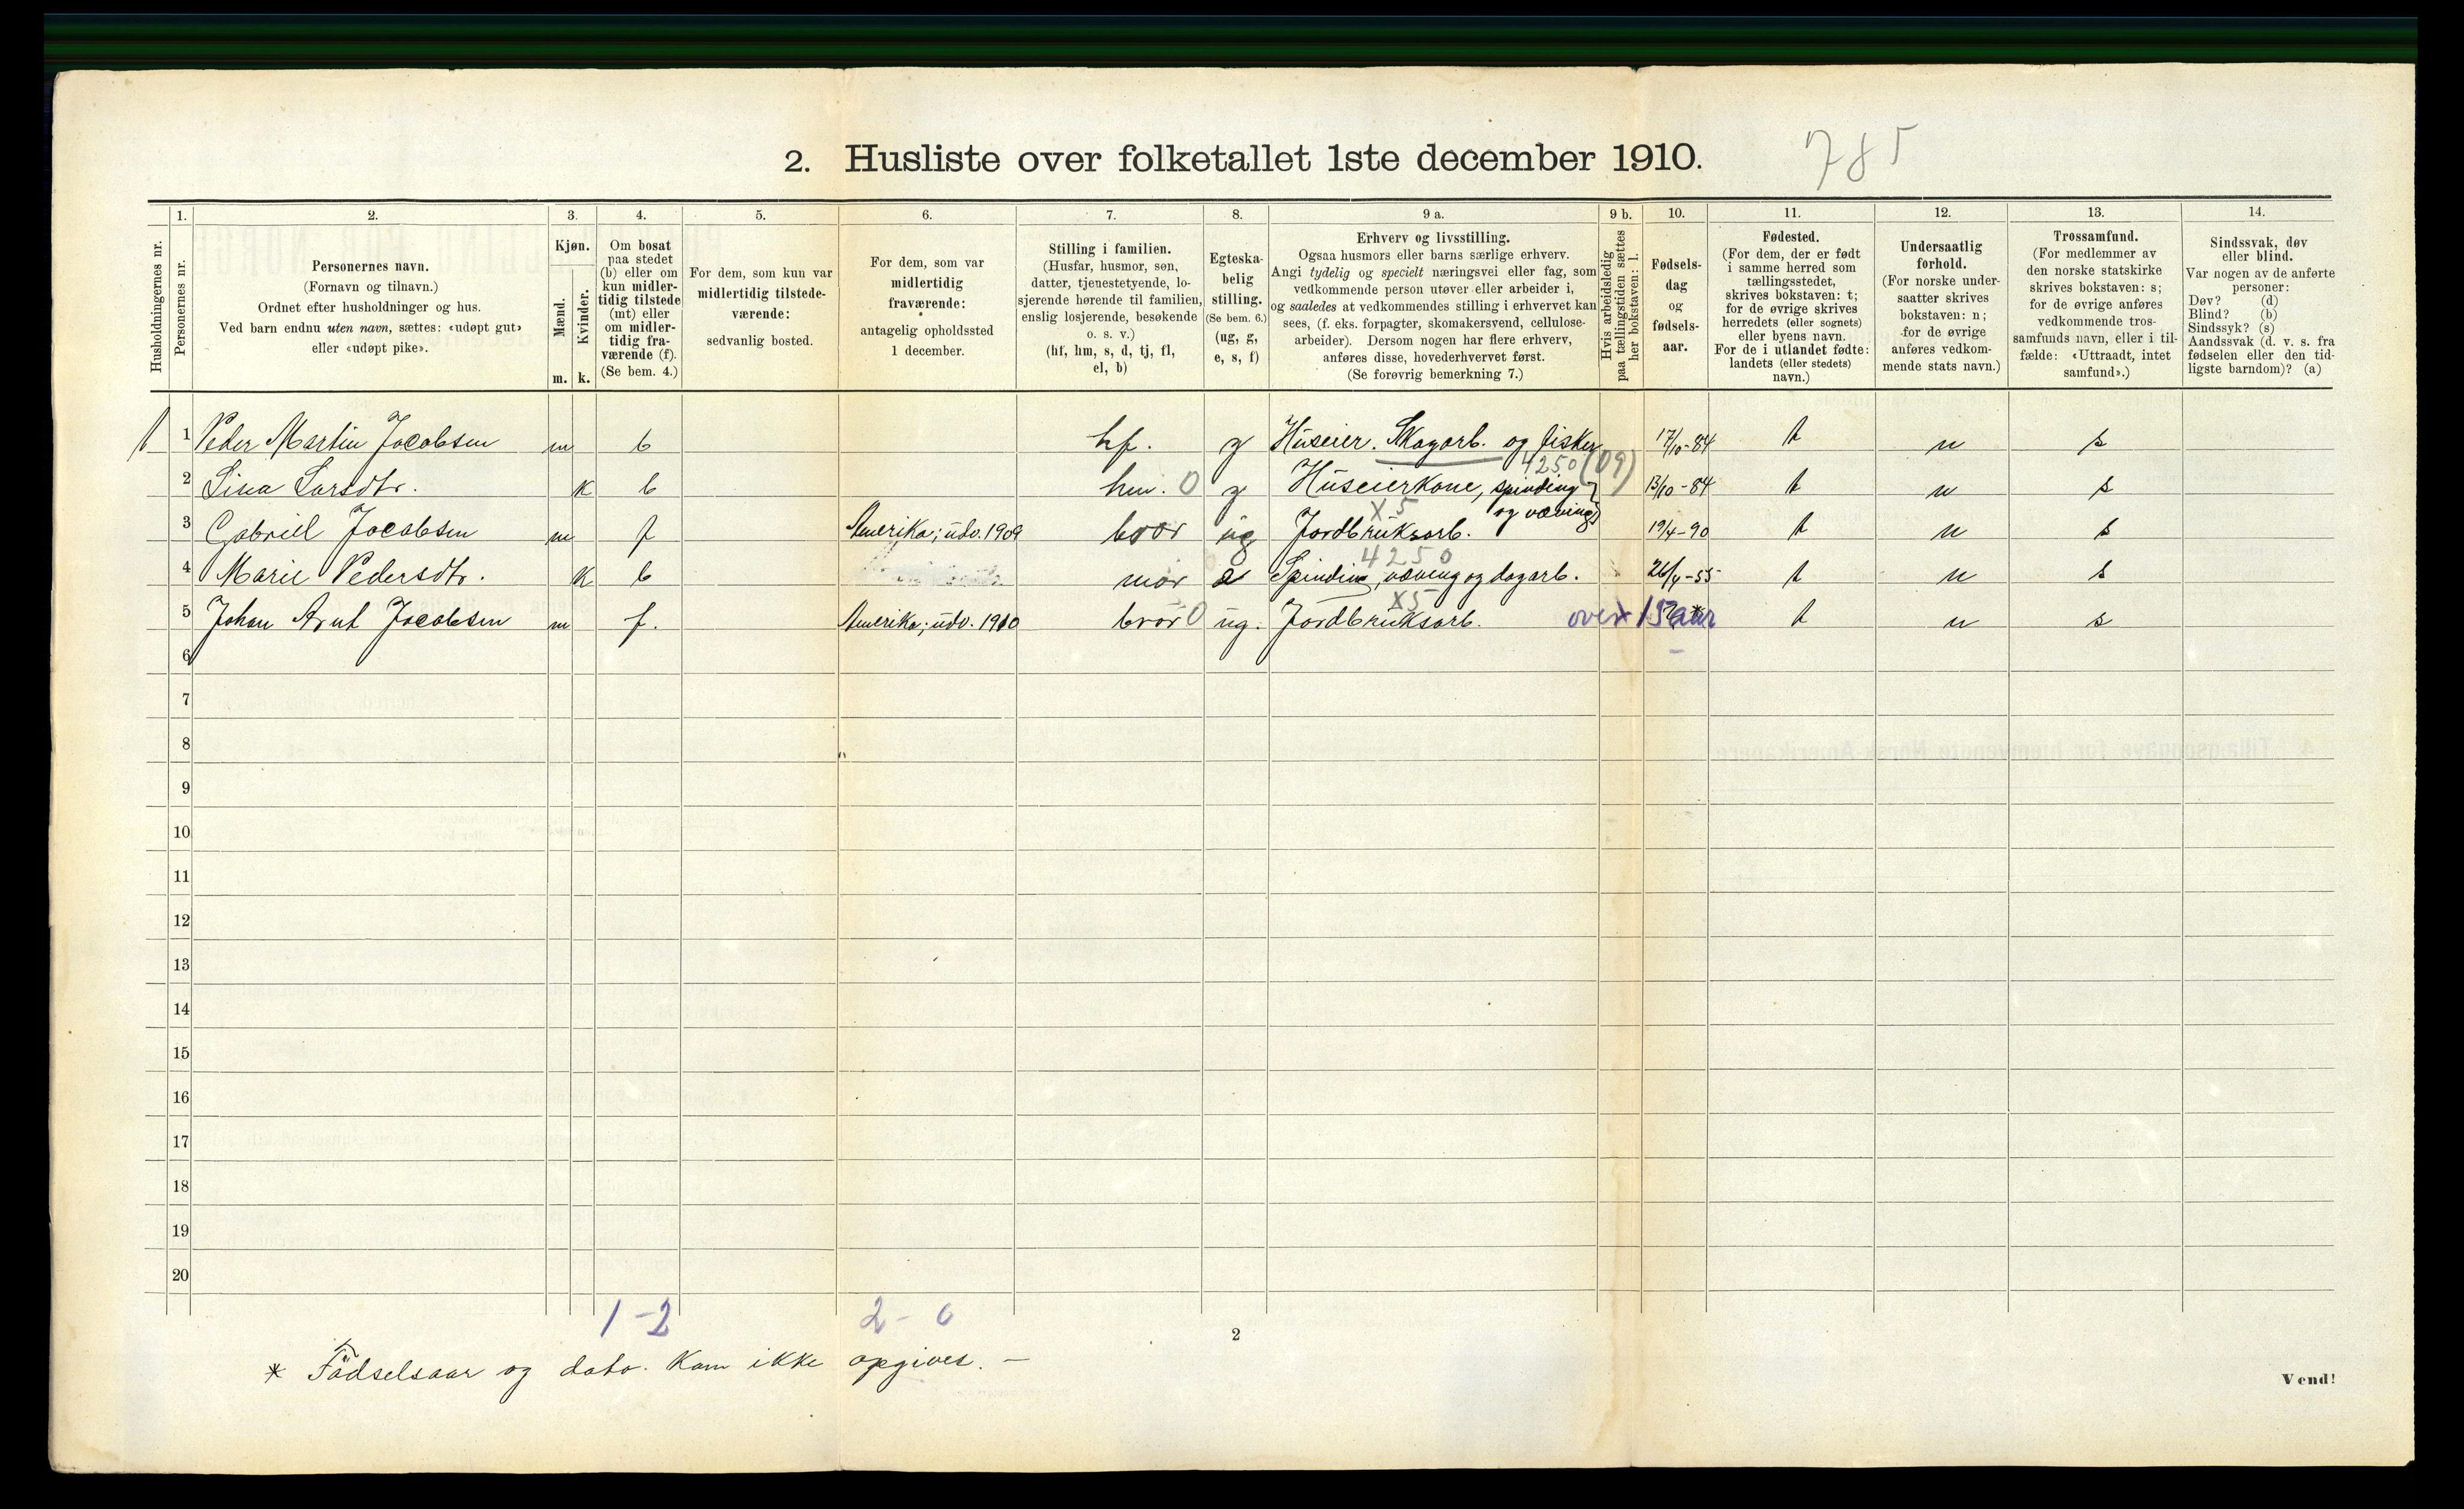 2. Husliste over folketallet 1ste december 1910.
785
Husholdningernes nr.
1.
Personernes nr.
2.
Personernes navn.
(Fornavn og tilnavn.)
Ordnet efter husholdninger og hus.
Ved barn endnu uten navn, sættes: «udøpt gut»
eller «udøpt pike».
3.
Kjøn.
Mænd.
Kvinder.
m. k.
4.
Om bosat
paa stedet
(b) eller om
kun midler-
tidig tilstede
(mt) eller
om midler-
tidig fra-
værende (f).
(Se bem. 4.)
5.
For dem, som kun var
midlertidig tilstede-
værende:
sedvanlig bosted.
6.
For dem, som var
midlertidig
fraværende:
antagelig opholdssted
1 december.
7.
Stilling i familien.
(Husfar, husmor, søn,
datter, tjenestetyende, lo-
sjerende hørende til familien,
enslig losjerende, besøkende
o. s. v.)
(hf, hm, s, d, tj, fl,
el, b)
8.
Egteska-
belig
stilling.
(Se bem. 6.)
(ug, g,
e, s, f)
9 a.
Erhverv og livsstilling.
Ogsaa husmors eller barns særlige erhverv.
Angi tydelig og specielt næringsvei eller fag, som
vedkommende person utøver eller arbeider i,
og saaledes at vedkommendes stilling i erhvervet kan
sees, (f. eks. forpagter, skomakersvend, cellulose-
arbeider). Dersom nogen har flere erhverv,
anføres disse, hovederhvervet først.
(Se forøvrig bemerkning 7.)
9 b.
Hvis arbeidsledig
paa tællingstiden sættes
her bokstaven: l.
10.
Fødsels-
dag
og
fødsels-
aar.
11.
Fødested.
(For dem, der er født
i samme herred som
tællingsstedet,
skrives bokstaven: t;
for de øvrige skrives
herredets (eller sognets)
eller byens navn.
For de i utlandet fødte:
landets (eller stedets)
navn.)
12.
Undersaatlig
forhold.
(For norske under-
saatter skrives
bokstaven: n;
for de øvrige
anføres vedkom-
mende stats navn.)
13.
Trossamfund.
(For medlemmer av
den norske statskirke
skrives bokstaven: s;
for de øvrige anføres
vedkommende tros-
samfunds navn, eller i til-
fælde: «Uttraadt, intet
samfund».)
14.
Sindssvak, døv
eller blind.
Var nogen av de anførte
personer:
Døv? (d)
Blind? (b)
Sindssyk? (s)
Aandssvak (d. v. s. fra
fødselen eller den tid-
ligste barndom)? (a)
1 1 Peder Martin Jacobsen m b hf. g Huseier. Skogarb. og fisker 17/10-84 t n s
4250 (09)
2 Lina Larsdtr. k b hm. 0 g Huseierkone, spinding og væving 13/10-84 t n s
X5
3 Gabriel Jacobsen m f Amerika; udv. 1909 bror ug Jordbruksarb. 19/4-90 t n s
4250
4 Marie Pedersdtr. k b mor e Spinding, væving og dagarb. 26/4-55 t n s
X5
5 Johan Arnt Jacobsen m f. Amerika; udv. 1910 bror 0 ug. Jordbruksarb. over 15 aar * t n s
6
7
8
9
10
11
12
13
14
15
16
17
18
19
20
1-2 2-0
2
* Fødselsaar og dato. Kan ikke opgives. —
Vend!